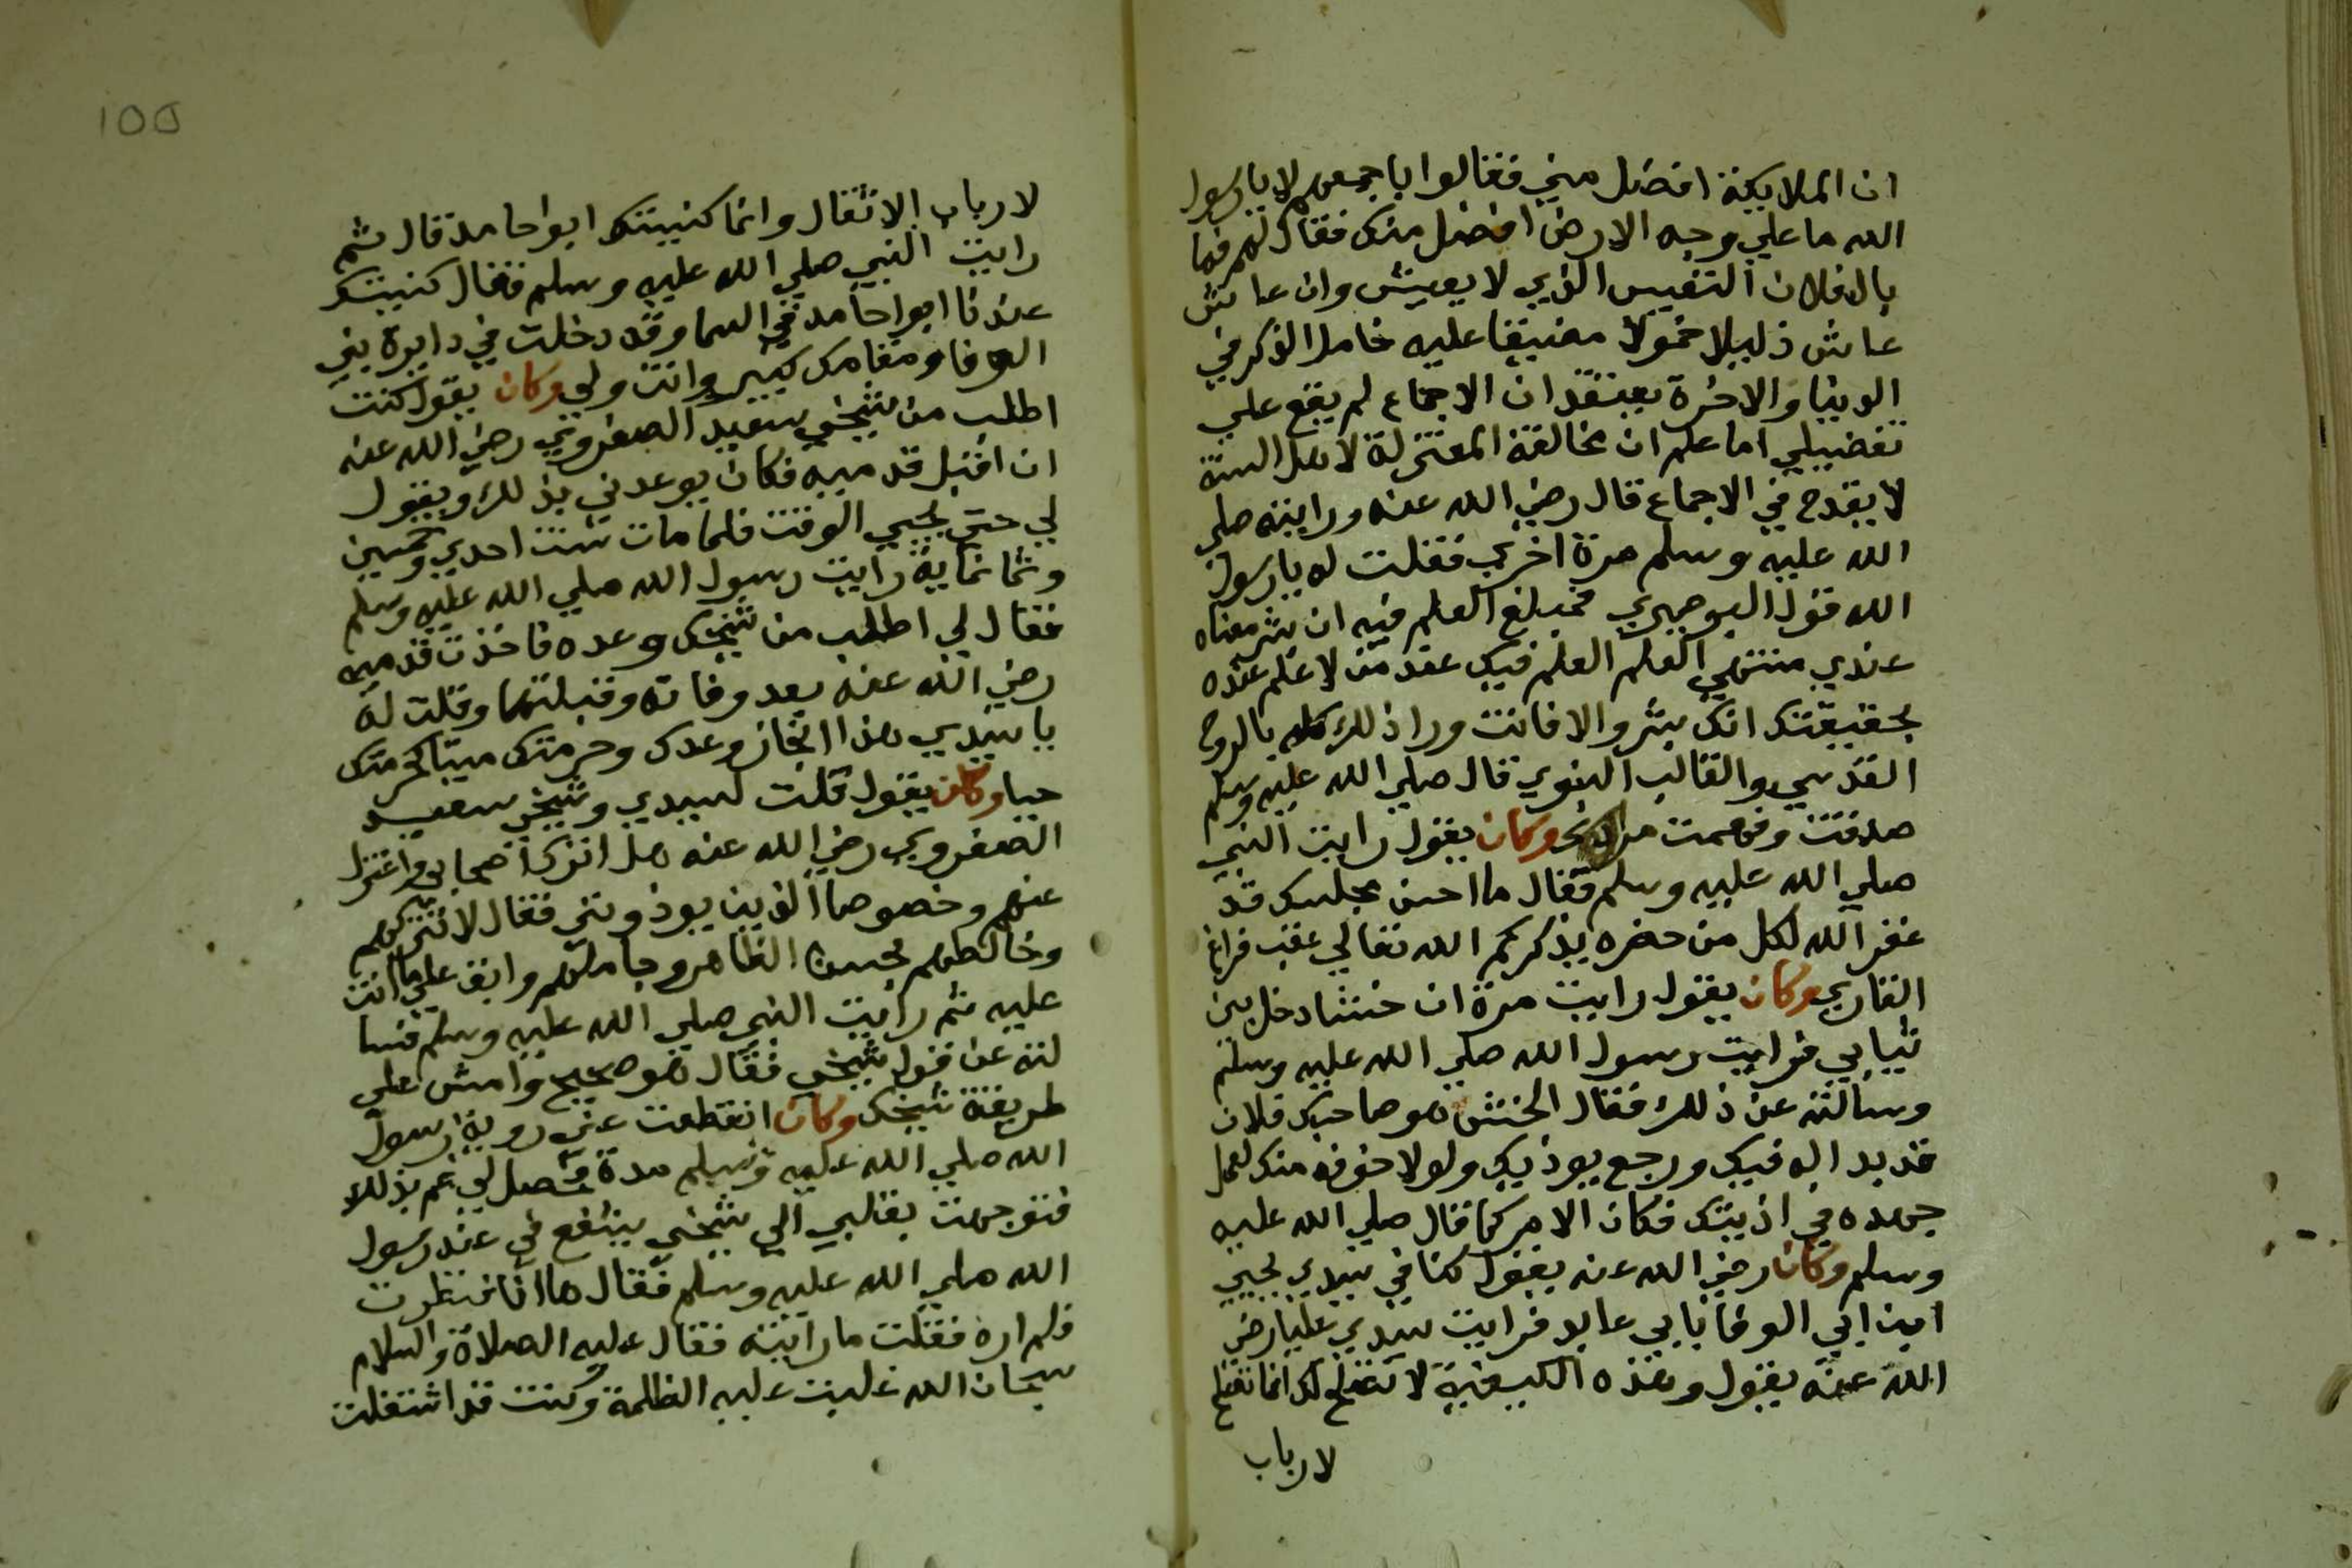 ان الملايكة افضل مني فقالوا باجمعهم لا يا رسول
الله ما علي وجه الارض افضل منك فقال لهم فما
بال فلان التعيس الذي لا يعيش وان عاش
عاش ذليلا خمولا مضيقا عليه خامل الذكر في
الدنيا والاخرة يعتقد ان الاجماع لم يقع علي
تفضيلي اما علم ان مخالفة المعتزلة لاهل السنة
لا يقدح في الاجماع قال رضي الله عنه ورايته صلي
الله عليه وسلم مرة اخري فقلت له يا رسول
الله قول البوصيري فمبلغ العلم فيه ان بشر معناه
عندي منتهي العلم العلم فيك عند من لا علم عنده
بحقيقتك انك بشر والا فانت ورا ذلك كله بالروح
القدسي والقالب النبوي قال صلي الله عليه وسلم
صدقت وفهمت وكان يقول رايت النبي
صلي الله عليه وسلم فقال ما احسن مجلسك قد
غفر الله لكل من حضره بذكركم الله تعالي عقب فراغ
القاري وكان يقول رايت مرة ان حنشا دخل بين
ثيابي فرايت رسول الله صلي الله عليه وسلم
وسالته عن ذلك فقال الحنش هو صاحبك فلان
قد بدا له فيك ورجع يوذيك ولولا خوفه منك لعمل
جهده في اذيتك فكان الامر كما قال صلي الله عليه
وسلم وكان رضي الله عنه يقول كنا في سيدي يحيي
ابن ابي الوفا بابي عابد فرايت سيدي عليا رضي
الله عنه يقول وهذه الكيفية لا تصلح لك انما تصلح
لارباب
١٥٥
لارباب الاثقال وانما كنيتك ابوا حامد قال ثم
رايت النبي صلي الله عليه وسلم فقال كنيتك
عندنا ابوا حامد في السما وقد دخلت في دايرة بني
الوفا ومقامك كبير وانت ولي وكان يقول كنت
اطلب من شيخي سعيد الصفروي رضي الله عنه
ان اقبل قدميه فكان يوعدني بذلك ويقول
لي حتي يجيي الوقت فلما مات سنت احدي وخمسين
وثمانماية رايت رسول الله صلي الله عليه وسلم
فقال لي اطلب من شيخك وعده فاخذت قدميه
رضي الله عنه بعد وفاته وقبلتهما وقلت له
يا سيدي هذا انجاز وعدك وحرمتك ميتا كحرمتك
حيا وكان يقول قلت لسيدي وشيخي سعيد
الصفروي رضي الله عنه هل اترك اصحابي واعتزل
عنهم وخصوصا الذين يوذونني فقال لا تتركهم
وخالطهم بحسن الظاهر وجاملهم وابق علي ما انت
عليه ثم رايت النبي صلي الله عليه وسلم فسا
لته عن قول شيخي فقال هو صحيح وامش علي
طريقة شيخك وكان انقطعت عني روية رسول
الله صلي الله عليه وسلم مدة فحصل لي غم بذلك
فتوجهت بقلبي الي شيخي يشفع في عند رسول
الله صلي الله عليه وسلم فقال ها انا فنظرت
فلم اره فقلت ما رايته فقال عليه الصلاة والسلام
سبحان الله غلبت عليه الظلمة وكنت قد اشتغلت